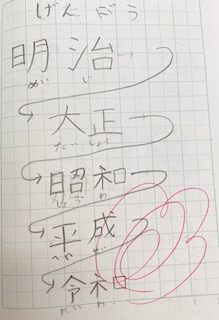 げんごう
明治
めいじ
大正
たいしょう
昭和
しょうわ
平成
令和
れいわ